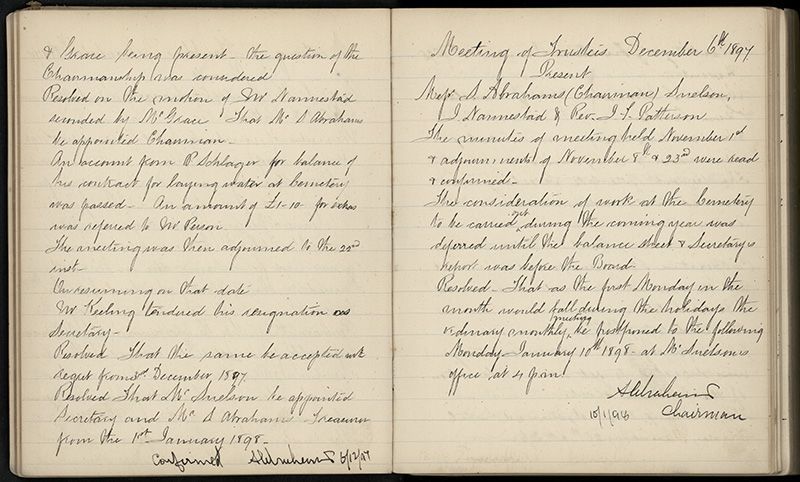 & Grace being present - the question of the
Chairmanship was considered
Resolved on the motion of Mr Nannestad
seconded by Mr Grace That Mr S Abrahams
be appointed Chairman -
An account from P Schlager for balance of
his contract for laying water at Cemetery
was passed - An amount of £1-10- for extras
was referred to Mr Person
The meeting was then adjourned to the 23rd
inst -
On resuming on that date
Mr Keeling tendered his resignation as
Secretary -
Resolved That the same be accepted with
regret from 31st December 1897
Resolved That Mr Snelson be appointed
Secretary and Mr S Abrahams Treasurer
from the 1st January 1898 -
Confirmed SAbrahams 6/12/97
Meeting of Trustees December 6th 1897
Present
Messrs S Abrahams (Chairman) Snelson,
J Nannestad & Rev. J. F. Patterson
The minutes of meeting held November 1st
& adjournments of November 8th & 23rd were read
& confirmed -
The consideration of work at the Cemetery
to be carried out during the coming year was
deferred until the balance sheet & Secretary's
report was before the Board -
Resolved - That as the first Monday in the
month would fall during the holidays the
ordinary monthly meeting be postponed to the following
Monday January 10th 1898 - at Mr Snelson's
office, at 4 p.m.
SAbrahams
10/1/98 Chairman